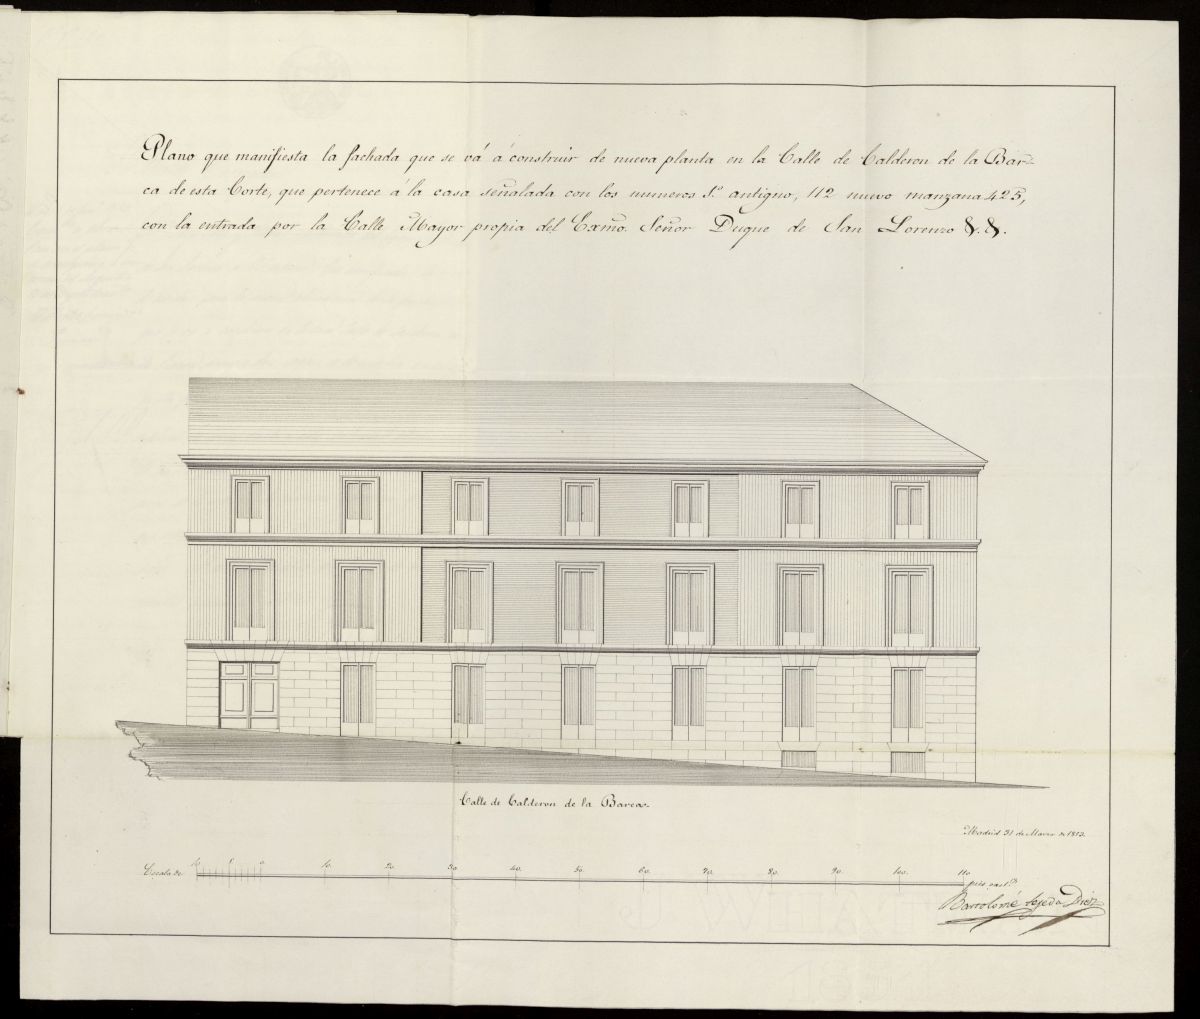 Plano que manifiesta la fachada que se vá á construir de nueva planta en la Calle de Calderon de la Bar=
ca de esta Corte, que pertenece á la casa señalada con los numeros 5.º antiguo, 112 nuevo manzana 425,
con la entrada por la Calle Mayor propia del Exmo. Señor Duque de San Lorenzo &. &.
Calle de Calderon de la Barca.
Madrid 31 de Marzo de 1853.
Escala de 10 5 0 10. 20. 30. 40. 50. 60. 70. 80. 90. 100. 110 pies cast.s
Bartolomé Tejeda Diez